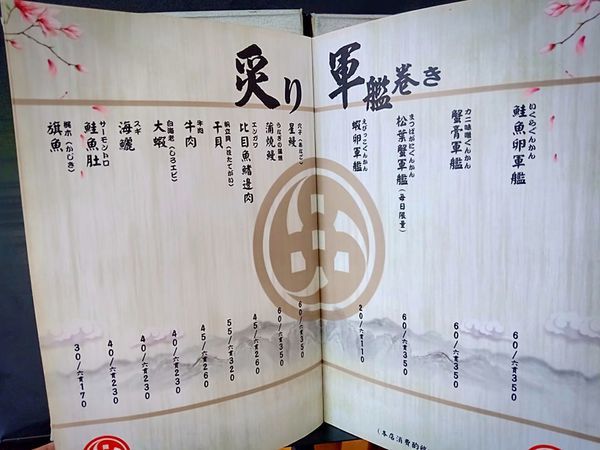 軍艦巻き
いくらぐんかん
鮭魚卵軍艦
60/六貫350
カニ味噌ぐんかん
蟹膏軍艦
60/六貫350
まつばがにぐんかん
松葉蟹軍艦(每日限量)
60/六貫350
えびっこぐんかん
蝦卵軍艦
20/六貫110
炙り
穴子(あなご)
星鰻
60/六貫350
うなぎの蒲燒
蒲燒鰻
60/六貫350
エンガワ
比目魚鰭邊肉
45/六貫260
帆立貝(ほたてがい)
干貝
55/六貫320
牛肉
牛肉
45/六貫260
白海老(しろエビ)
大蝦
40/六貫230
スギ
海鱺
40/六貫230
サーモントロ
鮭魚肚
40/六貫230
梶木(かじき)
旗魚
30/六貫170
(本店消費酌收